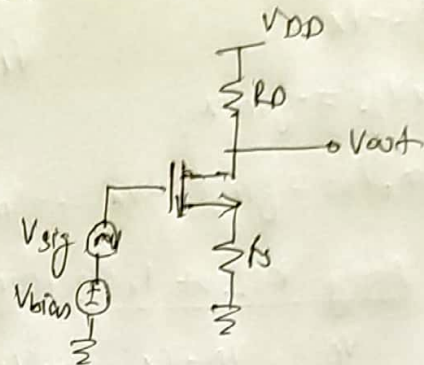 VDD
RD
Vout
Vsig
Vbias
Rs